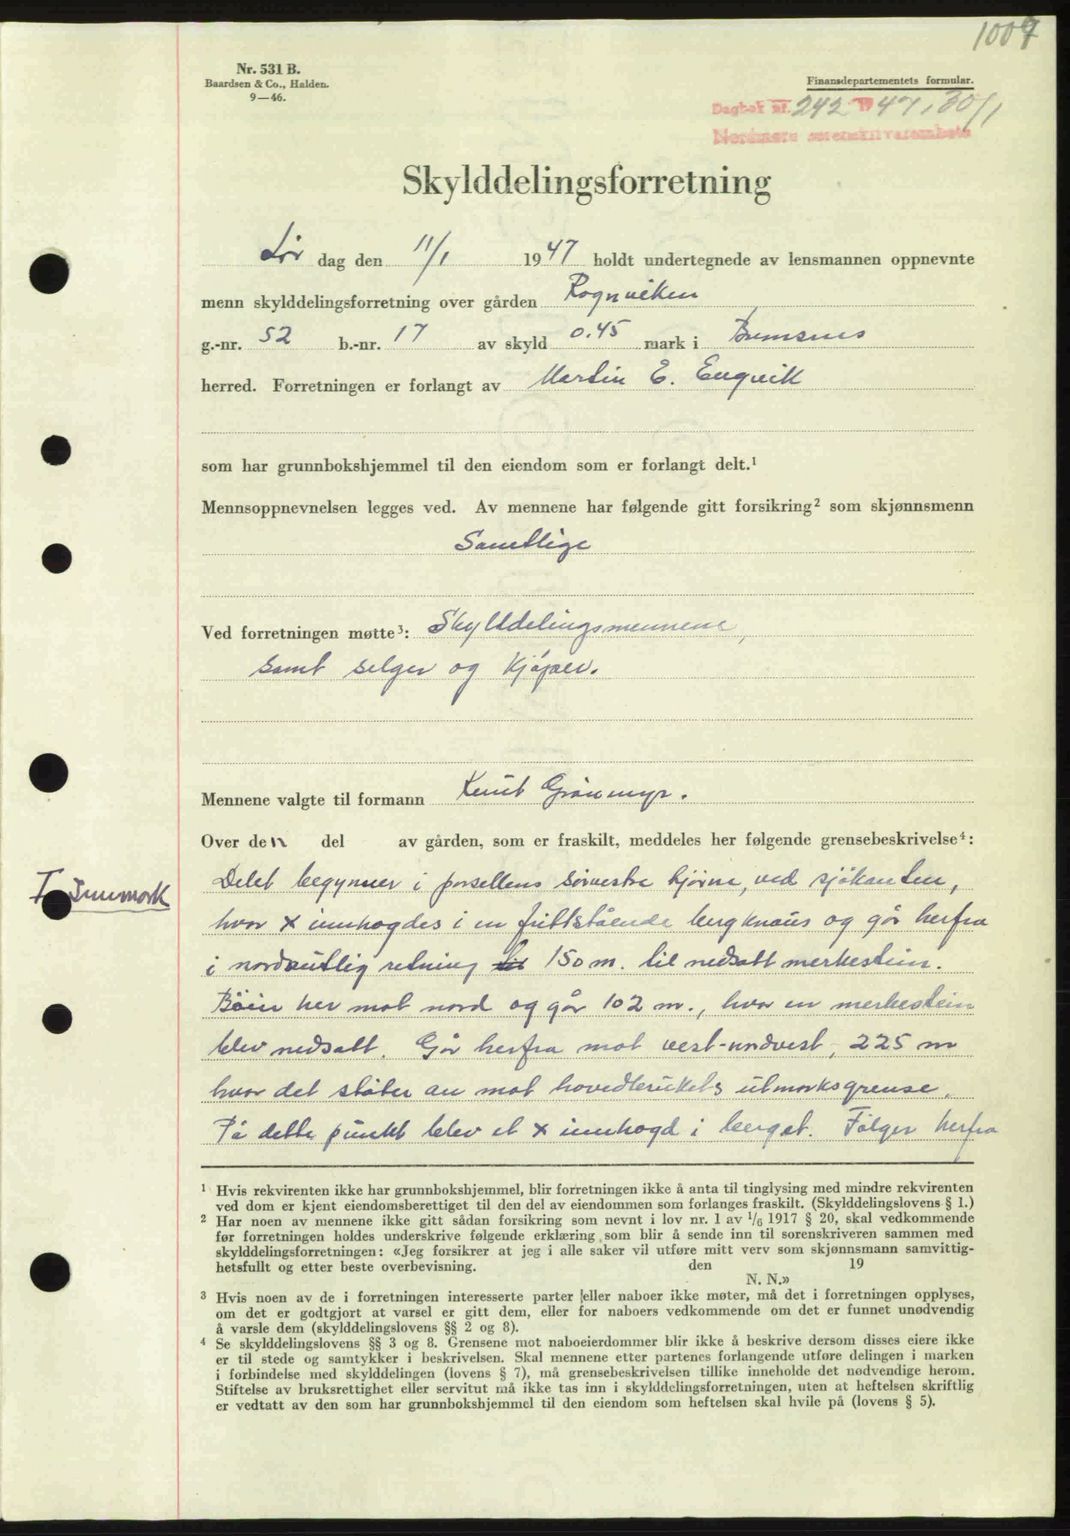 1007
Nr. 531 B.
Baardsen & Co., Halden.
9—46.
Finansdepartementets formular.
Dagbok nr. 242 1947, 30/1
Nordmøre sorenskriverembete
Skylddelingsforretning
Lør dag den 11/1 1947 holdt undertegnede av lensmannen oppnevnte
menn skylddelingsforretning over gården Rognviken
g.-nr. 52 b.-nr. 17 av skyld 0.45 mark i Bremsnes
herred. Forretningen er forlangt av Martin E. Engvik
som har grunnbokshjemmel til den eiendom som er forlangt delt.¹
Mennsoppnevnelsen legges ved. Av mennene har følgende gitt forsikring² som skjønnsmenn
Samtlige
Ved forretningen møtte³: Skylddelingsmennene,
samt selger og kjøper.
Mennene valgte til formann Knut Grønmyr.
Over den del av gården, som er fraskilt, meddeles her følgende grensebeskrivelse⁴:
I Innmark
Delet begynner i parsellens sørvestre hjørne, ved sjøkanten,
hvor x innhogdes i en frittstående bergknaus og går herfra
i nordøstlig retning til 150 m. til nedsatt merkestein.
Bøier her mot nord og går 102 m., hvor en merkestein
blev nedsatt. Går herfra mot vest-nordvest, 225 m
hvor det støter an mot hovedbrukets utmarksgrense.
På dette punkt blev et x innhogd i berget. Følger herfra
¹ Hvis rekvirenten ikke har grunnbokshjemmel, blir forretningen ikke å anta til tinglysing med mindre rekvirenten
ved dom er kjent eiendomsberettiget til den del av eiendommen som forlanges fraskilt. (Skylddelingslovens § 1.)
² Har noen av mennene ikke gitt sådan forsikring som nevnt i lov nr. 1 av 1/6 1917 § 20, skal vedkommende
før forretningen holdes underskrive følgende erklæring som blir å sende inn til sorenskriveren sammen med
skylddelingsforretningen: «Jeg forsikrer at jeg i alle saker vil utføre mitt verv som skjønnsmann samvittig-
hetsfullt og etter beste overbevisning. den 19
N. N.»
³ Hvis noen av de i forretningen interesserte parter eller naboer ikke møter, må det i forretningen opplyses,
om det er godtgjort at varsel er gitt dem, eller for naboers vedkommende om det er funnet unødvendig
å varsle dem (skylddelingslovens §§ 2 og 8).
⁴ Se skylddelingslovens §§ 3 og 8. Grensene mot naboeierdommer blir ikke å beskrive dersom disses eiere ikke
er til stede og samtykker i beskrivelsen. Skal mennene etter partenes forlangende utføre delingen i marken
i forbindelse med skylddelingen (lovens § 7), må grensebeskrivelsen tillike inneholde det nødvendige herom.
Stiftelse av bruksrettighet eller servitut må ikke tas inn i skylddelingsforretningen, uten at heftelsen skriftlig
er vedtatt av den som har grunnbokshjemmel til den eiendom som heftelsen skal hvile på (lovens § 5).